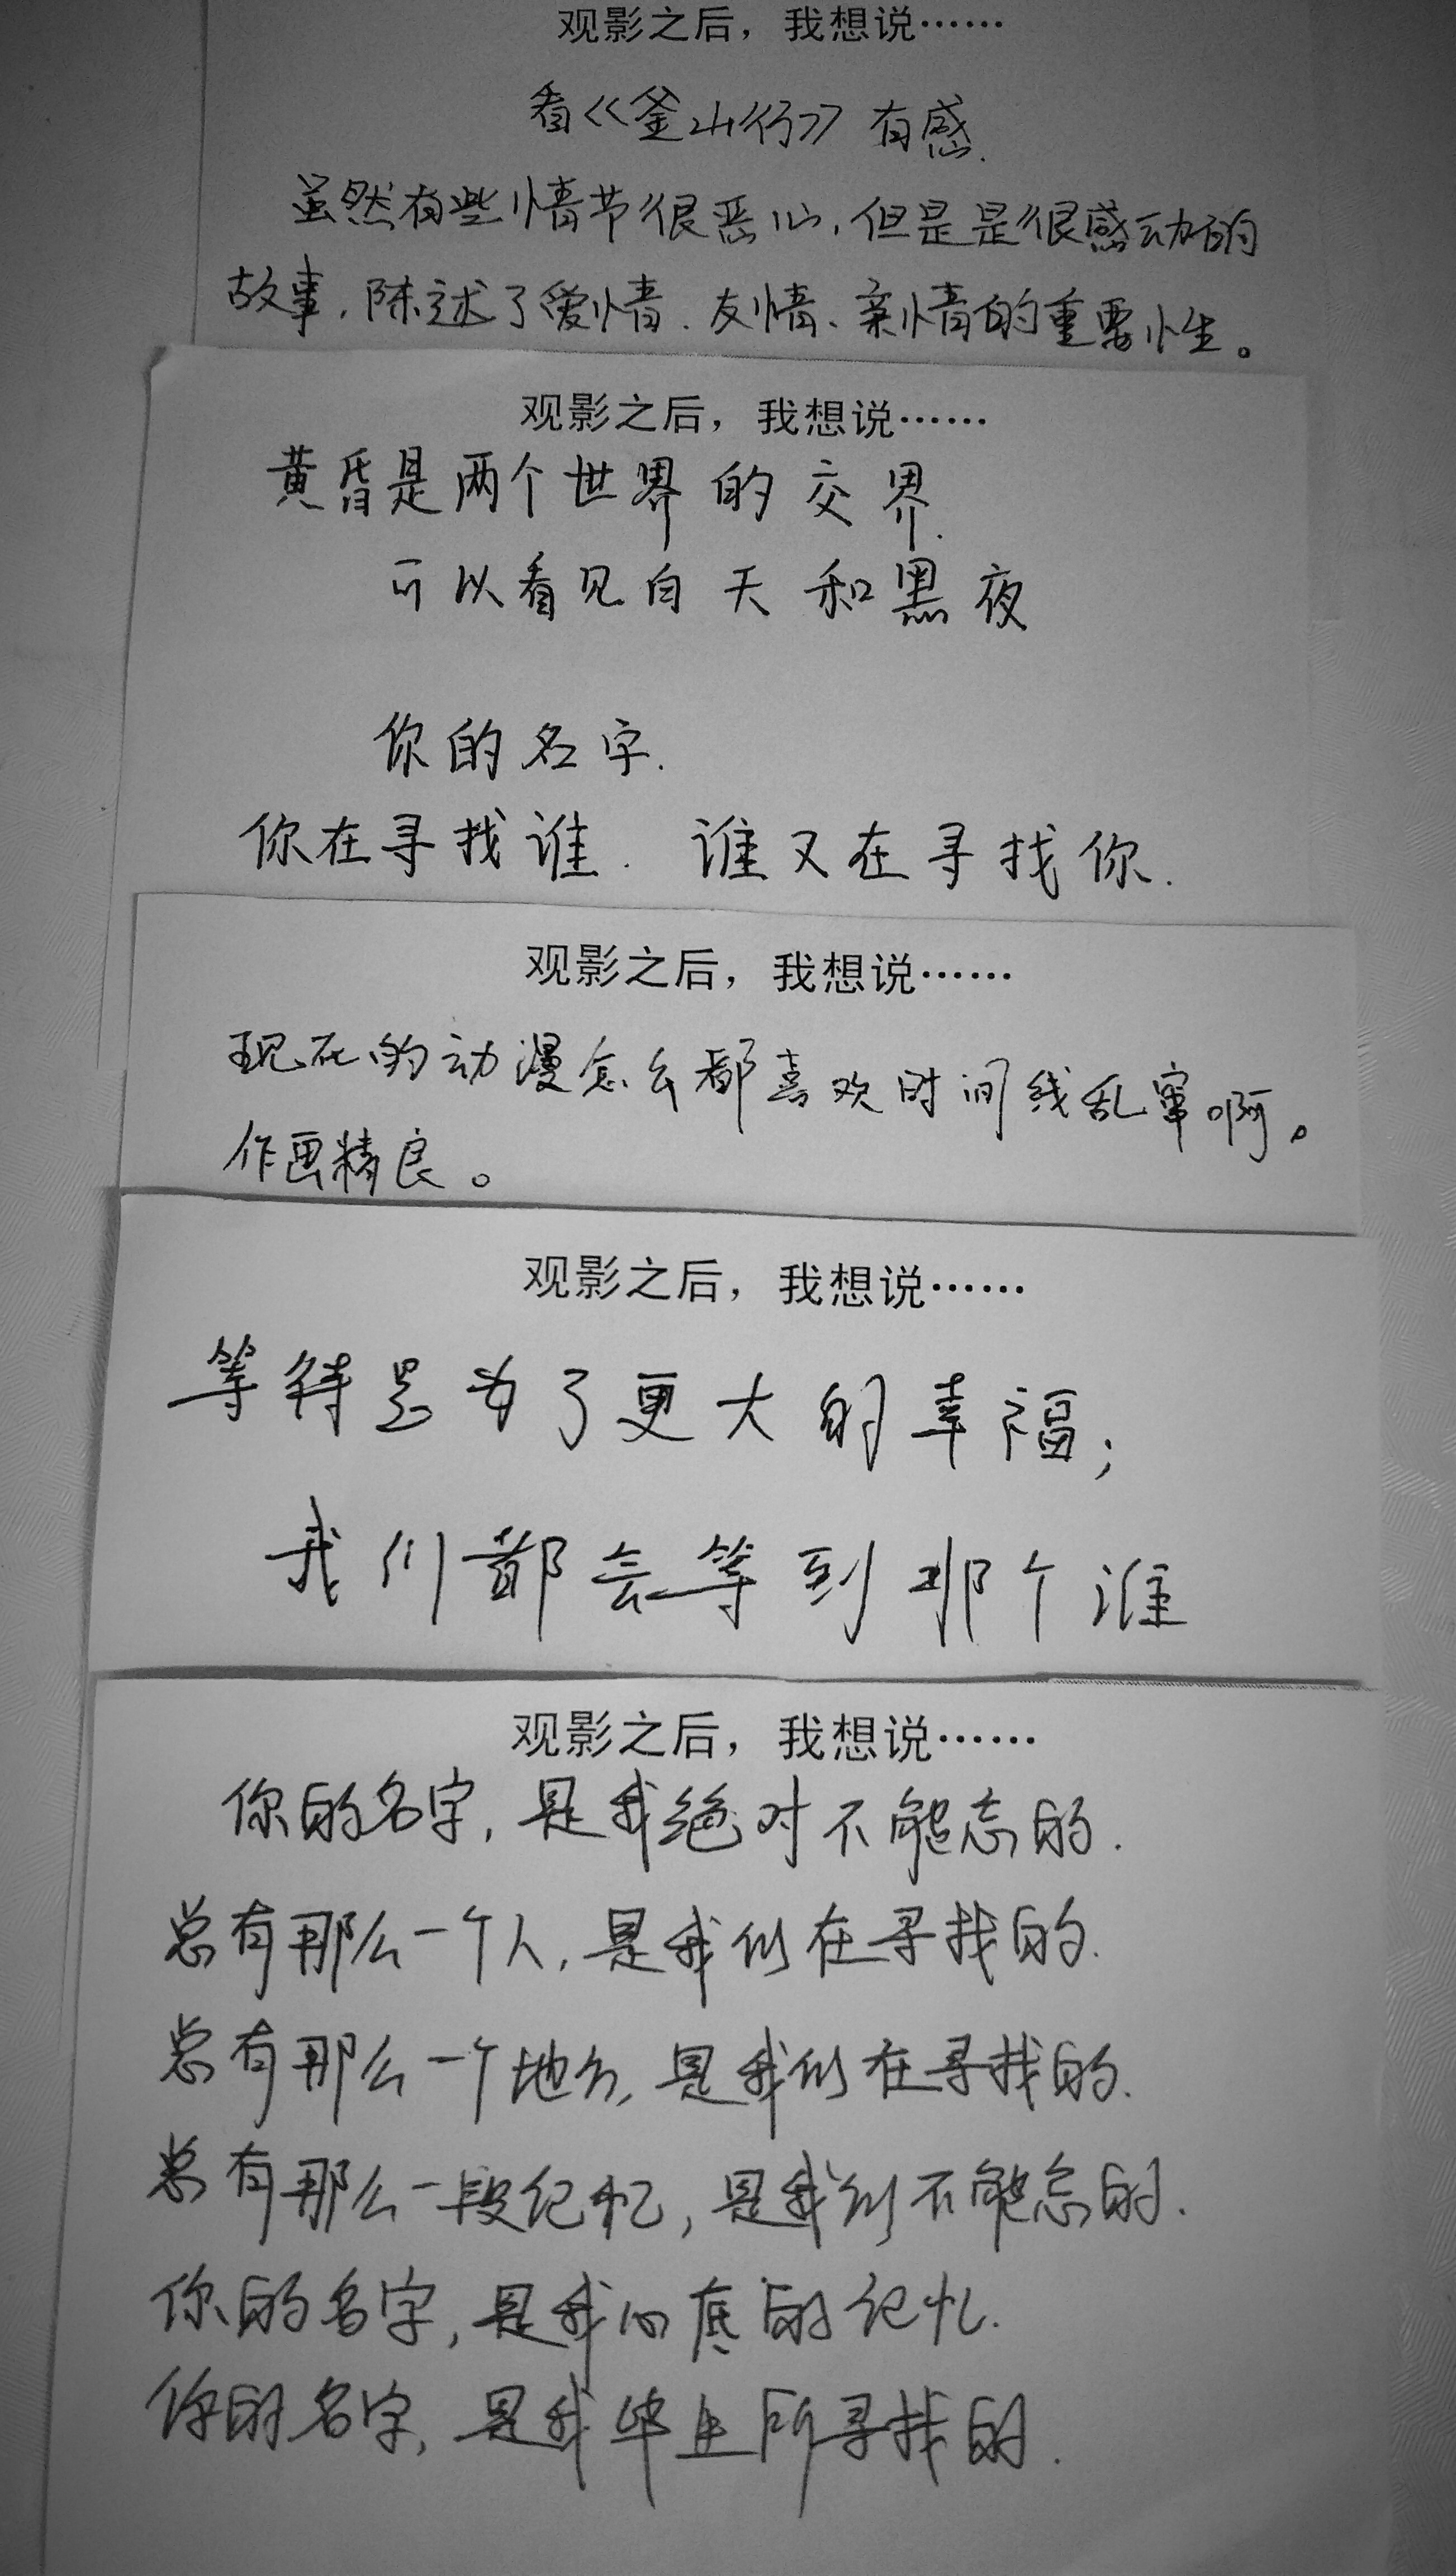 观影之后，我想说……
看《釜山行》有感.
虽然有些情节很恶心，但是是很感动的
故事，陈述了爱情、友情、亲情的重要性。
观影之后，我想说……
黄昏是两个世界的交界.
可以看见白天和黑夜
你的名字.
你在寻找谁. 谁又在寻找你.
观影之后，我想说……
现在的动漫怎么都喜欢时间线乱窜啊。
作画精良。
观影之后，我想说……
等待是为了更大的幸福；
我们都会等到那个谁
观影之后，我想说……
你的名字，是我绝对不能忘的.
总有那么一个人，是我们在寻找的.
总有那么一个地方，是我们在寻找的.
总有那么一段记忆，是我们不能忘的.
你的名字，是我心底的记忆.
你的名字，是我毕生所寻找的.